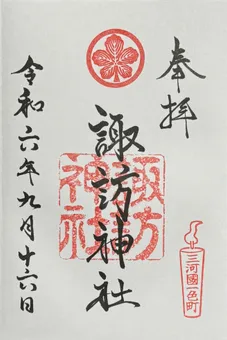 奉拝
諏訪神社
諏方
神社
三河國一色町
令和六年九月十六日